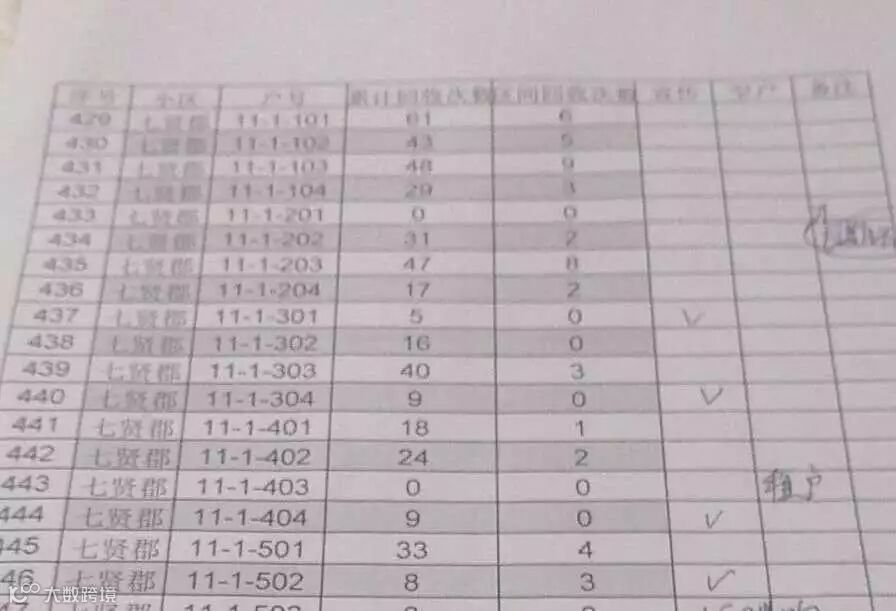 序号 小区 户号 累计回收次数 区间回收次数 宣传 空户 备注
429 七贤郡 11-1-101 61 6
430 七贤郡 11-1-102 43 5
431 七贤郡 11-1-103 48 9
432 七贤郡 11-1-104 29 3
433 七贤郡 11-1-201 0 0
434 七贤郡 11-1-202 31 2
435 七贤郡 11-1-203 47 8
436 七贤郡 11-1-204 17 2
437 七贤郡 11-1-301 5 0 ✓
438 七贤郡 11-1-302 16 0
439 七贤郡 11-1-303 40 3
440 七贤郡 11-1-304 9 0 ✓
441 七贤郡 11-1-401 18 1
442 七贤郡 11-1-402 24 2
443 七贤郡 11-1-403 0 0 租户
444 七贤郡 11-1-404 9 0 ✓
445 七贤郡 11-1-501 33 4
46 七贤郡 11-1-502 8 3 ✓
大数跨境